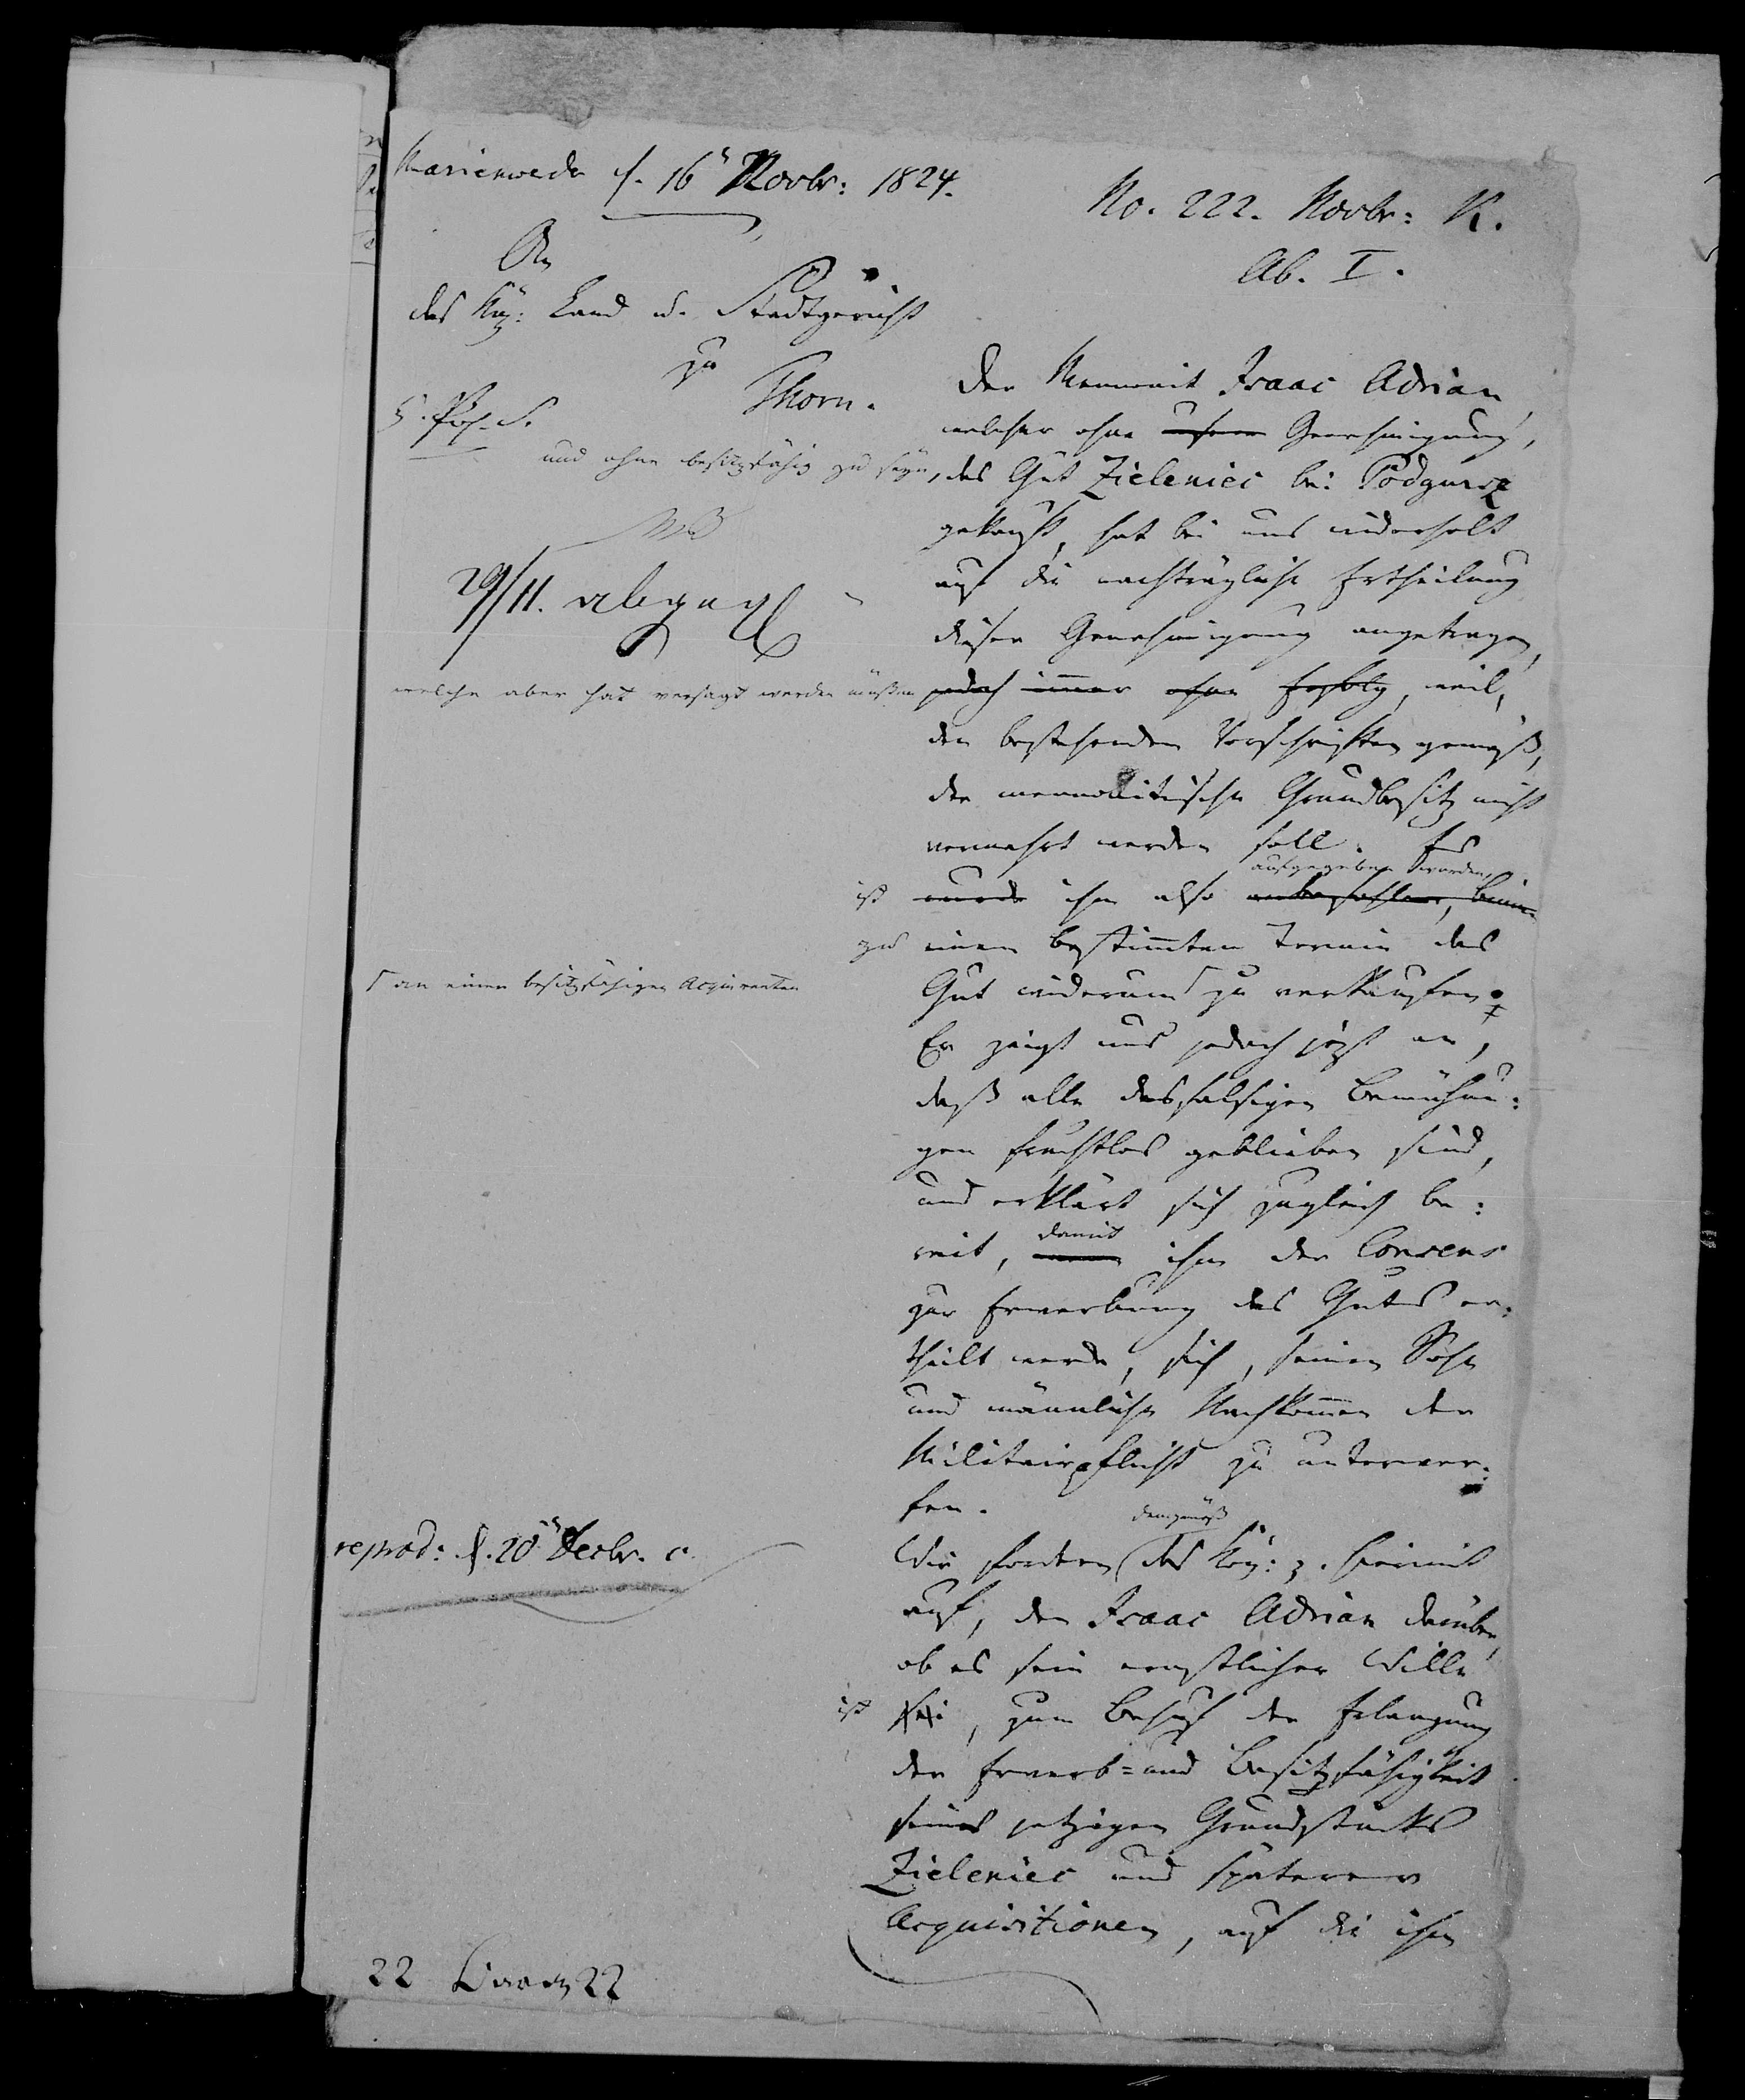 Marienwerder d. 16n Novbr: 1824.
No. 222. Novbr: K.
Ab. I.
An
das Kng: Land u. Stadtgericht
zu
Thorn.
und ohne besitzfähig zu seyn,
29/11. abgeg
welche aber hat versagt werden müßen
Der Mennonit Isaac Adrian,
welcher ohne unsere Genehmigung,
das Gut Zieleniec bei Podgurz
gekauft, hat bei uns wiederholt
auf die nachträgliche Ertheilung
dieser Genehmigung angetragen,
jedoch immer ohne Erfolg, weil,
den bestehenden Vorschriften gemäß,
der mennonitische Grundbesitz nicht
vermehrt werden soll. Es
aufgegeben worden,
ist wurde ihm also anbefohlen, binnen
zu einem bestimmten Termin das
Γ an einen besitzfähigen Acquirenten
Gut wiederum Γ zu verkaufen.
Er zeigt uns jedoch jetzt an,
daß alle desfalsigen Bemühun:
gen fruchtlos geblieben sind,
und erklärt sich zugleich be:
damit
reit, wenn ihm der Consens
zur Erwerbung des Guts er:
theilt werde, sich, seinen Sohn
und männliche Nachkommen der
Militairpflicht zu unterwer:
fen.
demgemäß
reprod: d. 20n Decbr. c.
Wir fordern das Kng: p. hiermit
auf, den Isaac Adrian darüber,
ob es sein ernstlicher Wille
ist sei, zum Behuf der Erlangung
der Erwerb= und Besitzfähigkeit
seines jetzigen Grundstücks
Zieleniec und späterer
Acquisitionen, auf die ihm
22 22